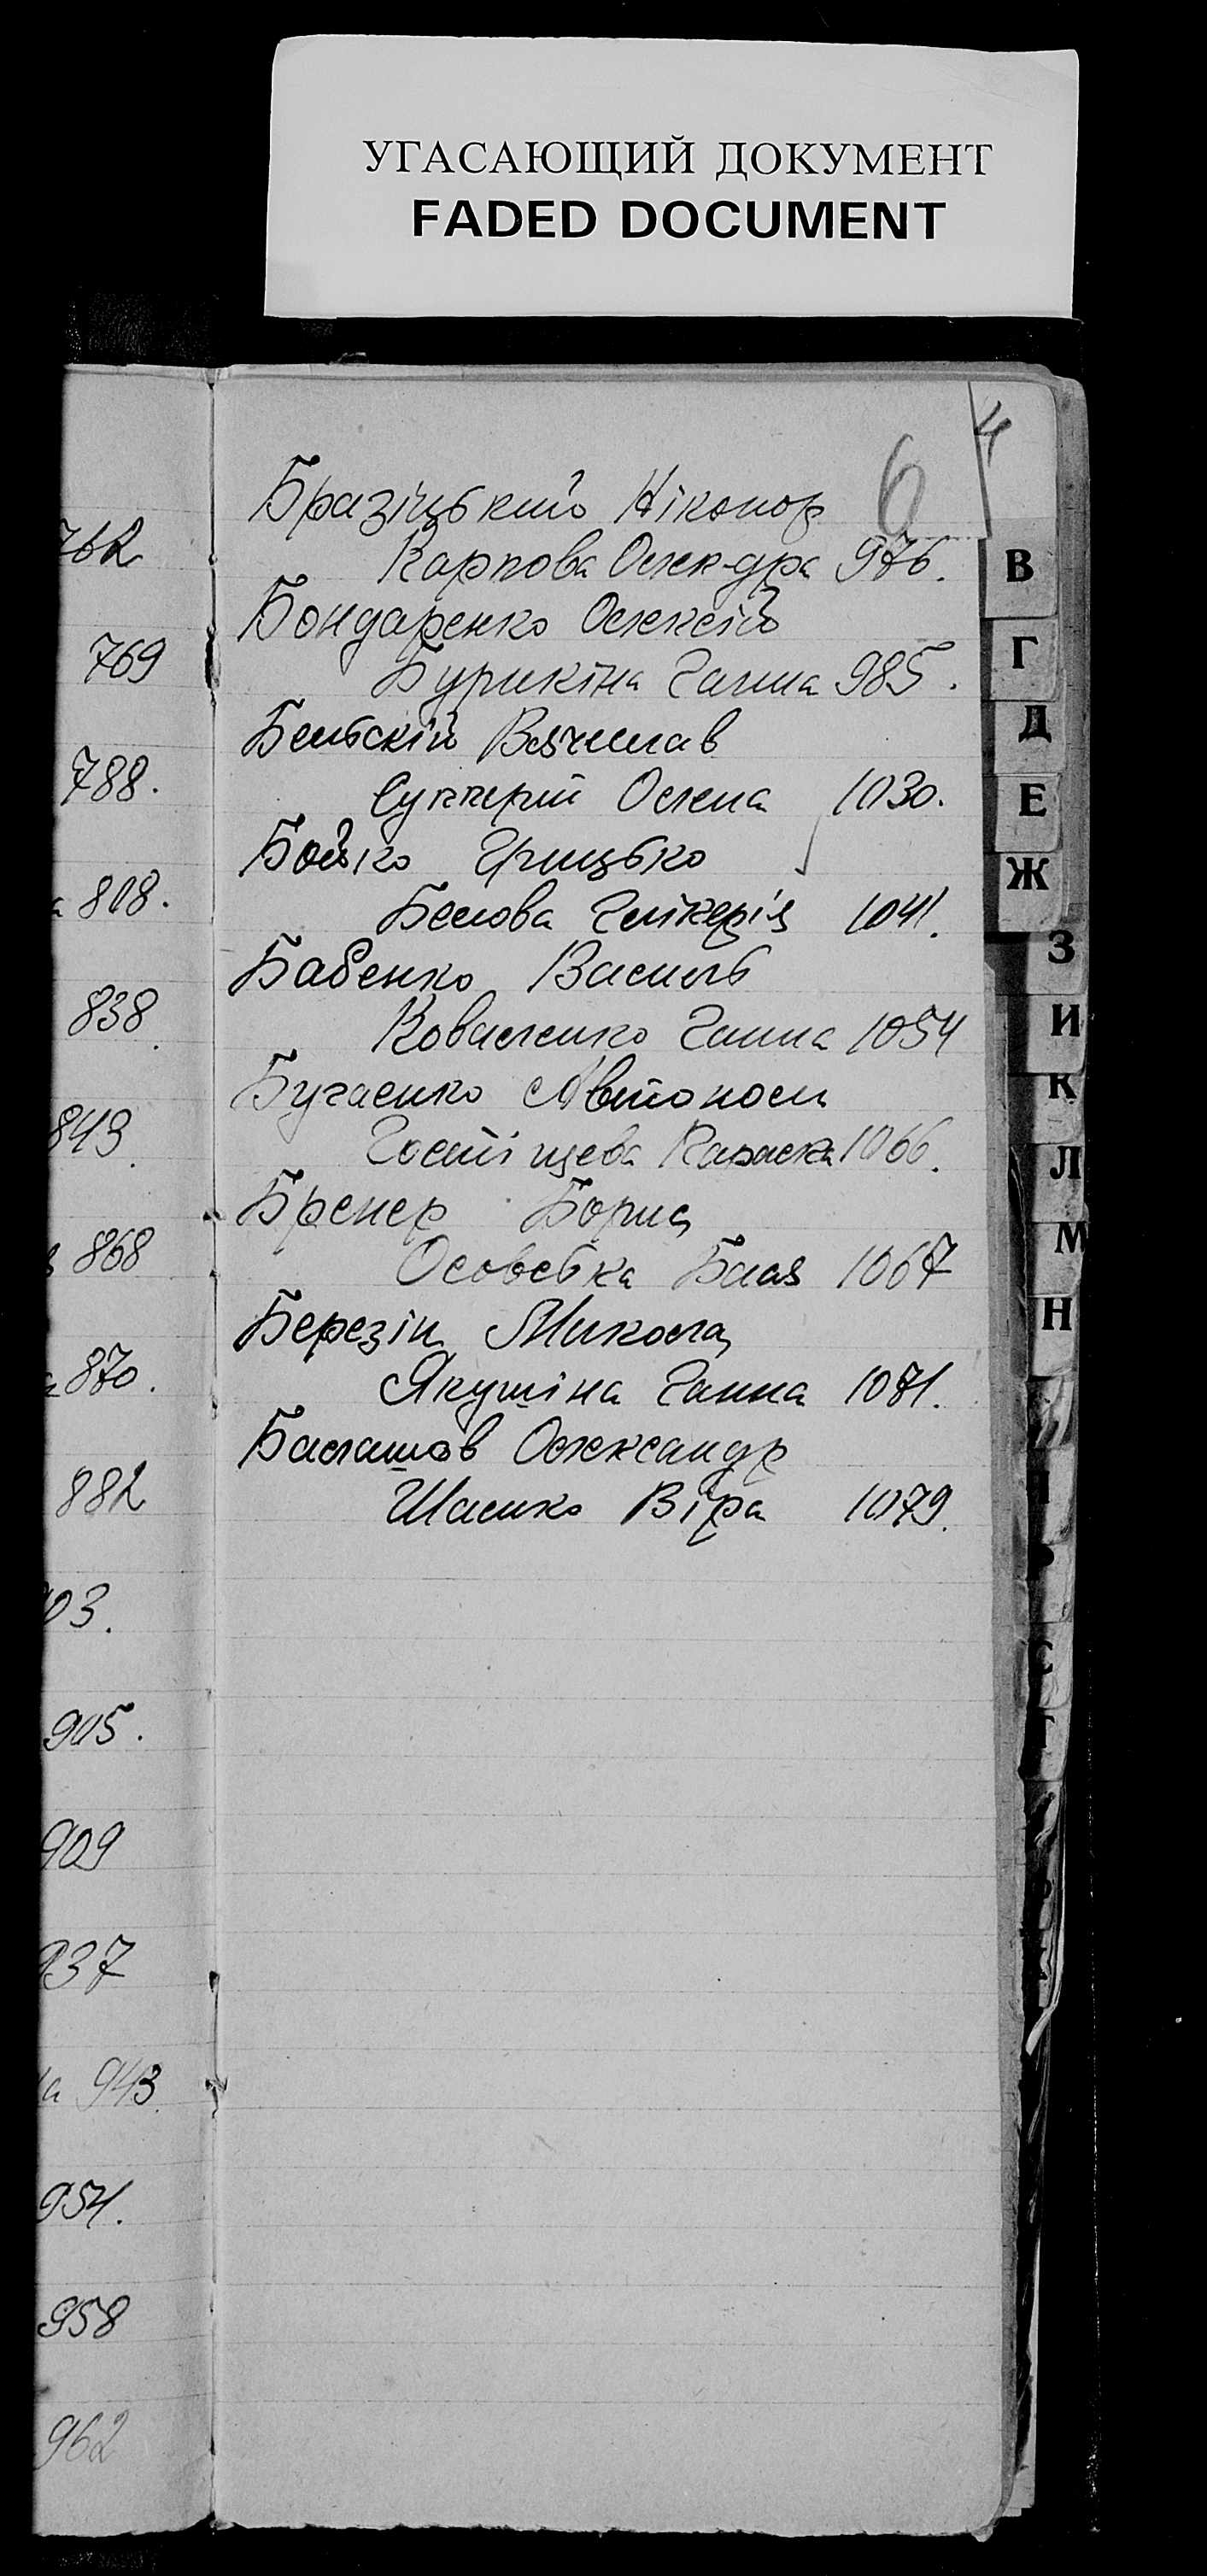 УГАСАЮЩИЙ ДОКУМЕНТ
FADED DOCUMENT
4
6
Бразіцький Ніконор
Карпова Олек-дра 976.
Бондаренко Олексій
Бурикіна Ганна 985.
Бельскій Вячеслав
Олена 1030.
Бойко Грицько
Белова Глікерія 1041.
Бабенко Василь
Коваленко Ганна 1054
Бугаенко Автоном
Гостіщева Параска 1066.
Бренер Борис
Осовська Бася 1067
Березін Микола
Якушіна Ганна 1071.
Балашов Олександр
Шаенко Віра 1079.
762
769
788.
а 808.
838.
843.
868
870.
882
03.
905.
909
937
а 943.
954.
958
962
В
Г
Д
Е
Ж
З
И
К
Л
М
Н